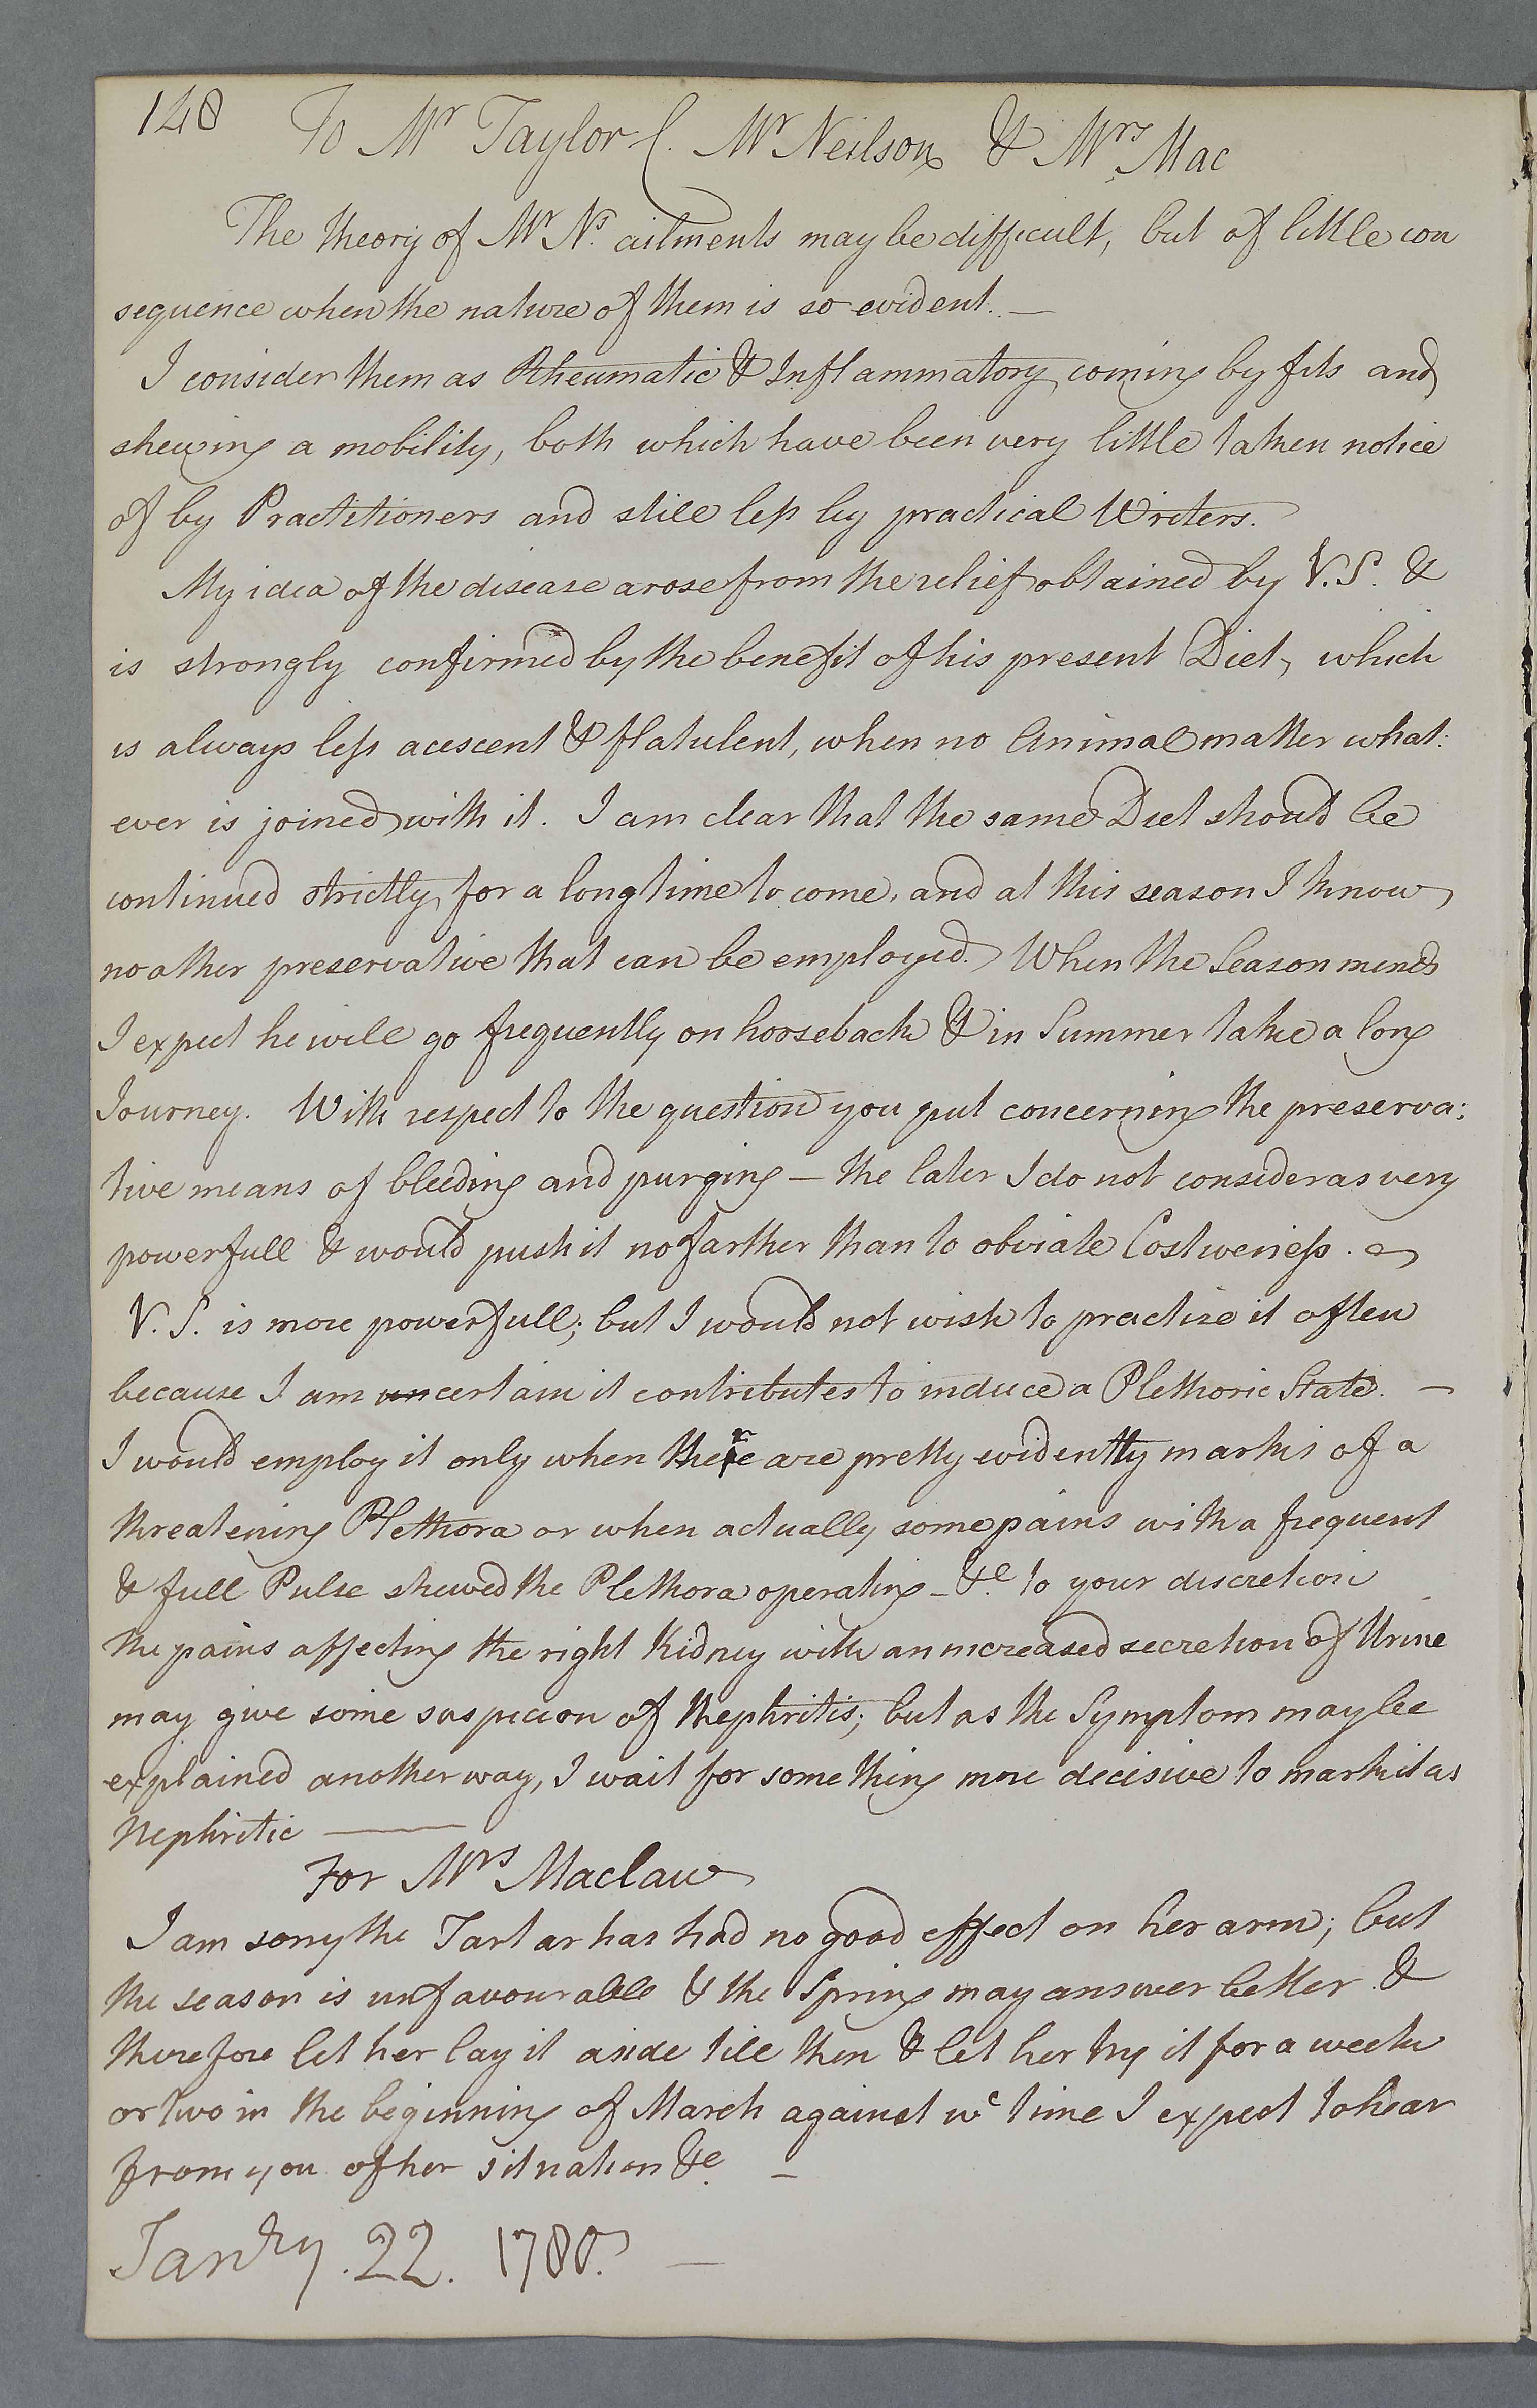 148 To Mr Taylor C. Mr Neilson & Mrs Mac
The theory of Mr Ns. ailments may be difficult, but of little con
sequence when the nature of them is so evident. —
I consider them as Rheumatic & Inflammatory, coming by fits and
shewing a mobility, both which have been very little taken notice
of by Practitioners and still less by practical Writers.
My idea of the disease arose from the relief obtained by V.S. &
is strongly confirmed by the benefit of his present Diet, which
is always less acescent & flatulent, when no Animal matter what:
ever is joined with it. I am clear that the same Diet should be
continued strictly, for a long time to come, and at this season I know
no other preservative that can be employed. When the Season mends
I expect he will go frequently on horseback & in Summer take a long
Journey. With respect to the question you put concerning the preserva:
tive means of bleeding and purging — the later I do not consider as very
powerfull & would push it no farther than to obviate Costweness. —
V.S. is more powerfull; but I would not wish to practise it often
because I am uncertain it contributes to induce a Plethoric State. —
I would employ it only when there are pretty evidently marks of a
threatening Plethora or when actually some pains with a frequent
& full Pulse shewed the Plethora operating — &c. to your discretion
the pains affecting the right Kidney with an increased secretion of Urine
may give some suspicion of Nephritis; but as the Symptom may be
explained another way, I wait for something more decisive to mark it as
Nephritic —
For Mrs Maclaw
I am sorry the Tartar has had no good effect on her arm; but
the season is unfavourable & the Spring may answer better &
therefore let her lay it aside till then & let her try it for a week
or two in the beginning of March against wc time I expect to hear
from you of her situation &c. —
Janry. 22. 1780. —